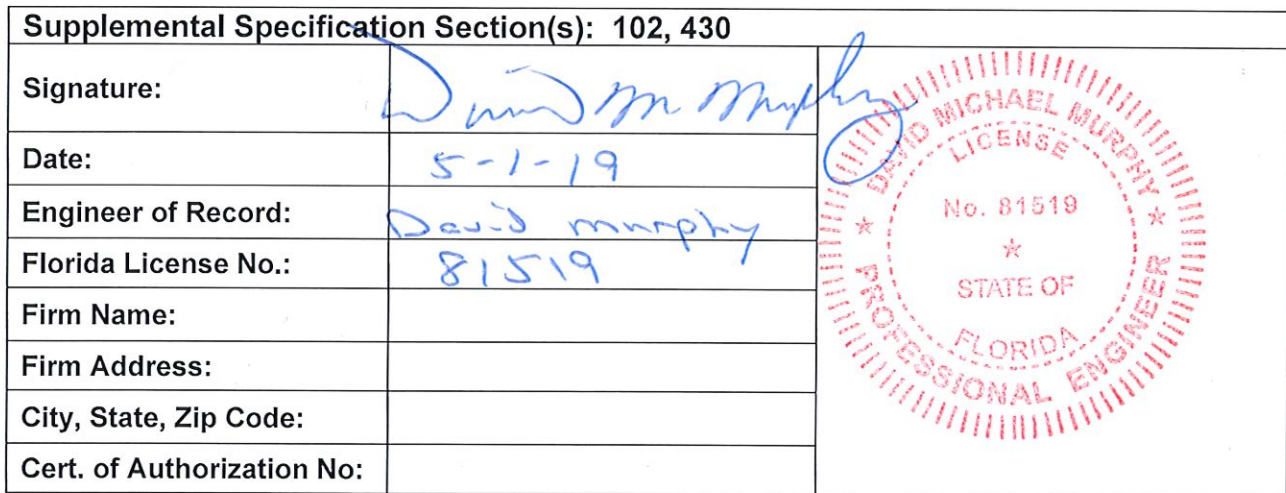 Supplemental Specification Section(s): 102, 430
Signature: David M Murphy
Date: 5-1-19
Engineer of Record: David murphy
Florida License No.: 81519
Firm Name:
Firm Address:
City, State, Zip Code:
Cert. of Authorization No:
DAVID MICHAEL MURPHY
LICENSE
No. 81519
STATE OF
FLORIDA
PROFESSIONAL ENGINEER